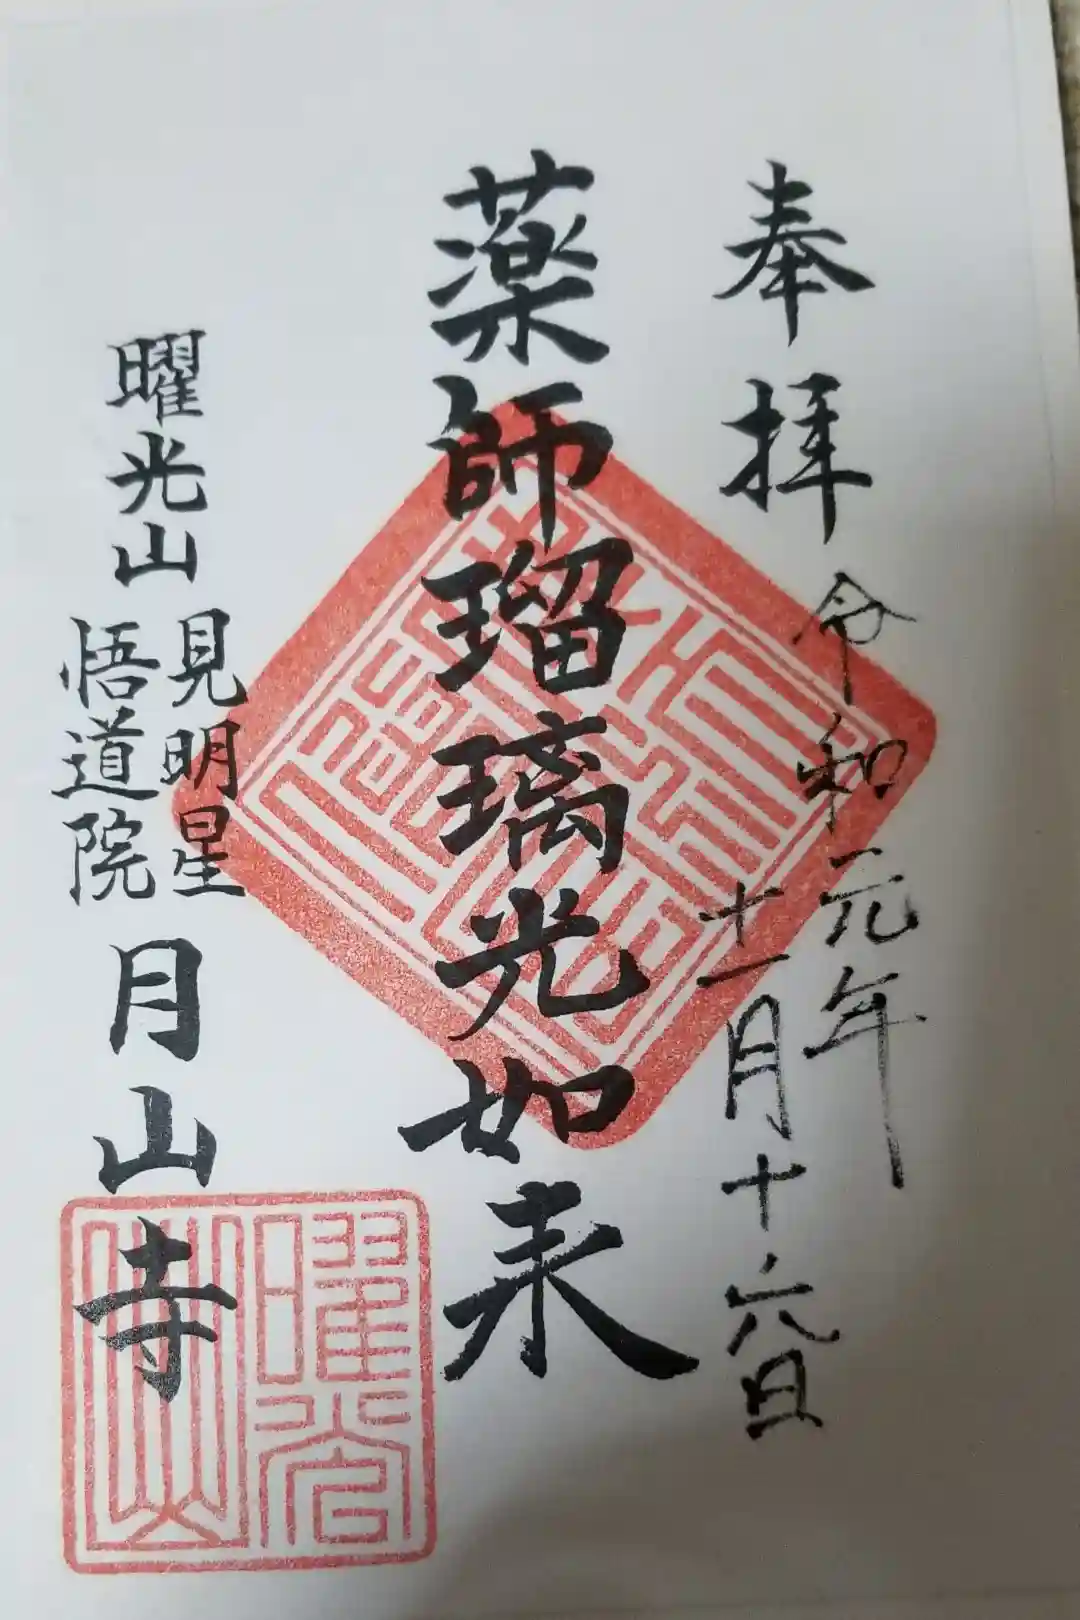 奉拝
令和元年
十一月十六日
薬師瑠璃光如来
曜光山
見明星
悟道院
月山寺
曜光山